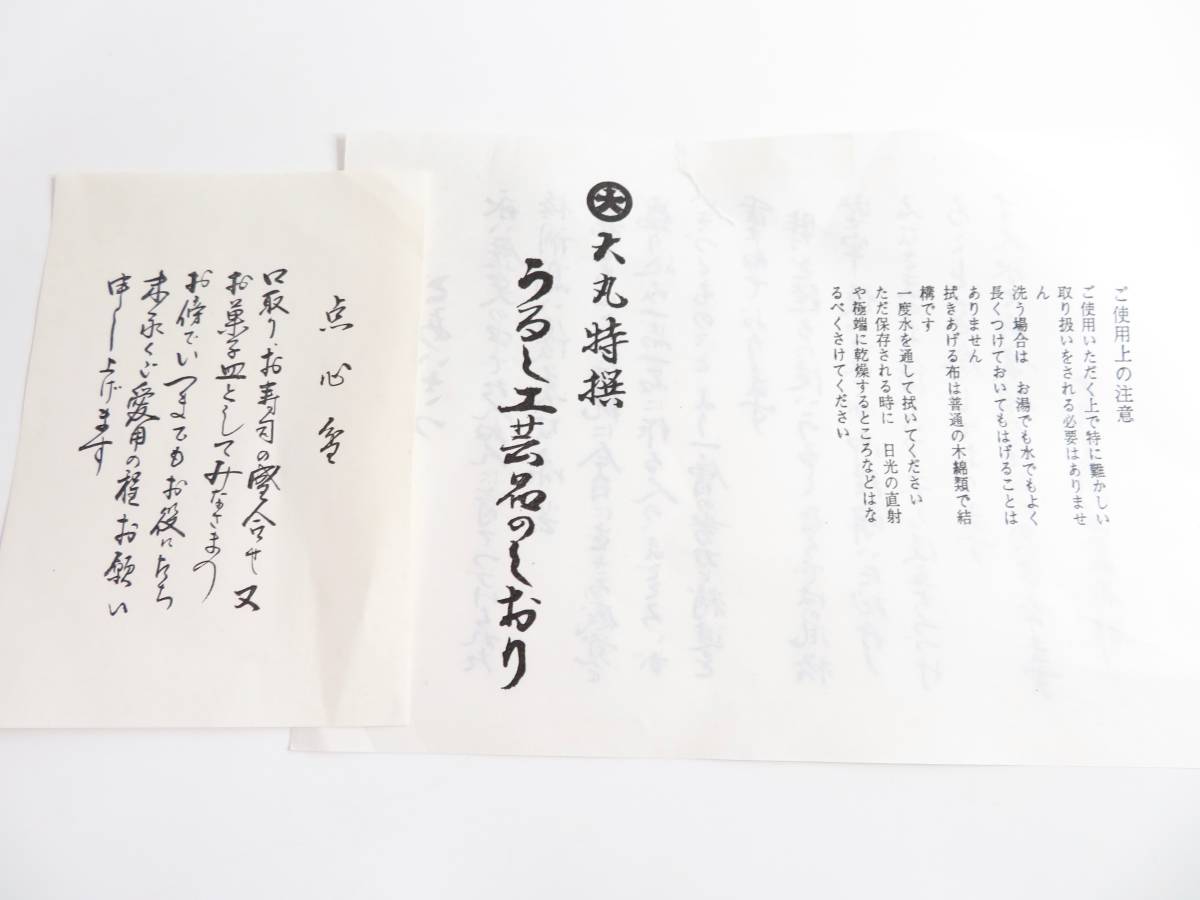 ご使用上の注意
ご使用いただく上で特に難かしい
取り扱いをされる必要はありませ
ん
洗う場合は お湯でも水でもよく
長くつけておいてもはげることは
ありません
拭きあげる布は普通の木綿類で結
構です
一度水を通して拭いてください
ただ保存される時に 日光の直射
や極端に乾燥するところなどはな
るべくさけてください
大 大丸特撰
うるし工芸品のしおり
点心盆
口取り、お寿司の盛合せ又
お菓子皿としてみなさまの
お傍でいつまでもお役にたち
末永くご愛用の程お願い
申し上げます